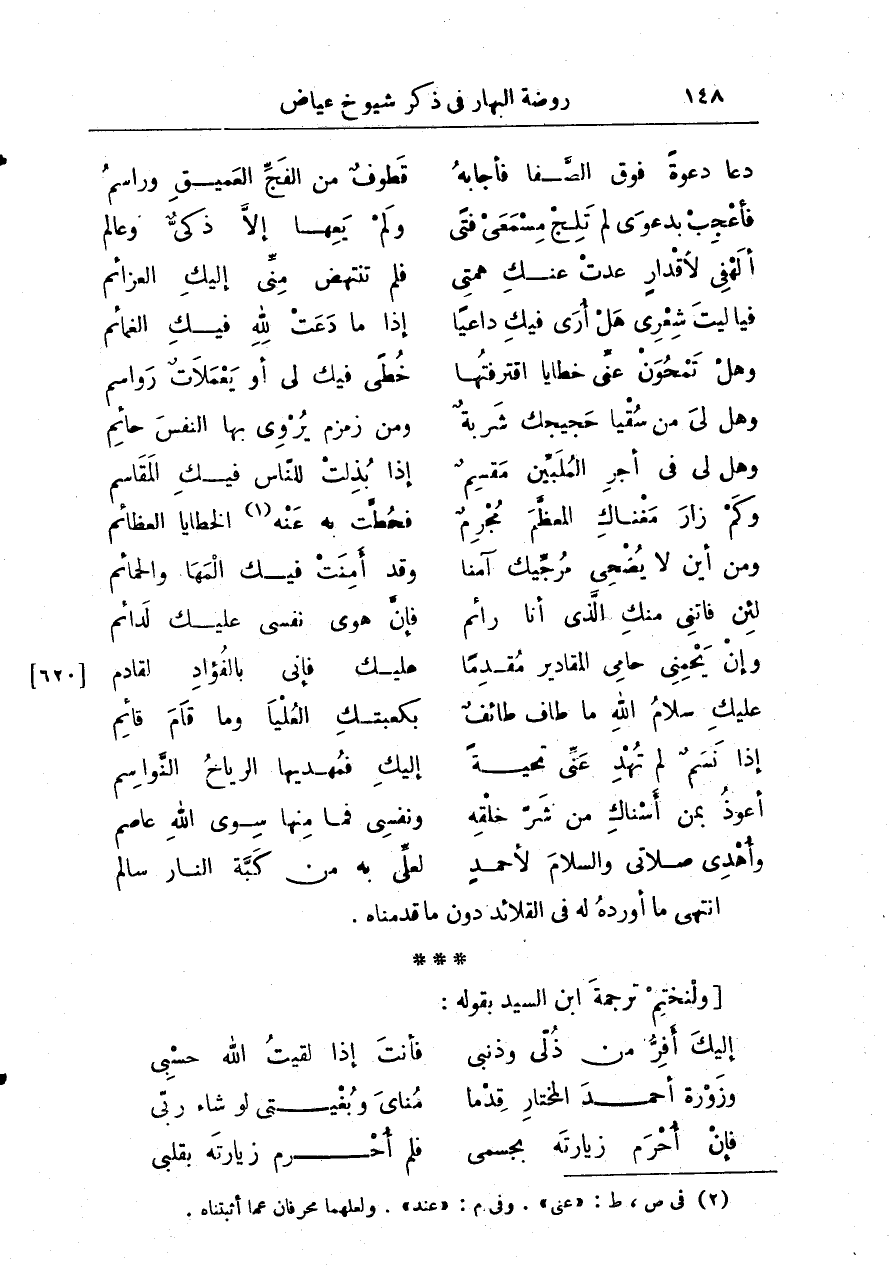 ١٤٨ روضة البهار فى ذكر شيوخ عياض
دعا دعوةً فوق الصَّفا فأجابهُ قَطوفٌ من الفَجِّ العَميق وراسمُ
فأَعْجِبْ بدعوَى لم تَلِجْ مِسْمَعَىْ فتًى ولَمْ يَعِها إلاَّ ذكىٌّ وعالم
ألَهْفِى لأقْدارٍ عدتْ عنكِ همتى فلم تنتهض مِنِّى إليكِ العزائم
فياليتَ شِعْرِى هَلْ أُرَى فيكِ داعيًا إذا ما دَعَتْ لِلهِ فيكِ الغمائم
وهلْ تَمْحُوَنْ عنِّى خطايا اقترفتُها خُطًى فيك لى أو يَعْمَلَاتٌ رَواسم
وهل لىَ من سُقْيا حَجيجك شَربةٌ ومن زمزم يُرْوِى بها النفسَ حائم
وهل لى فى أجرِ المُلَبِّين مَقسِمٌ إذا بُذِلتْ للنَّاس فيكِ المَقَاسم
وكَمْ زارَ مَغْناكِ المعظَّمَ مُجْرِمٌ فحُطَّت به عَنْه (١) الخطايا العظائم
ومن أين لا يُضْحِى مرُجِّيك آمنا وقد أَمِنَتْ فيك الْمَهَا والحمائم
لئِن فاتنِى منكِ الَّذى أنا رائم فإنَّ هوى نفسى عليك لَدائم
وإنْ يَحْمِنِى حامِى المقادير مُقدِمًا عليك فإنى بالفُؤادِ لقادم [٦٢٠]
عليكِ سلامُ اللهِ ما طاف طائفٌ بكعبتكِ العُلْيَا وما قاَمَ قائم
إذا نَسَمٌ لم تُهْدِ عَنِّى تحيةً إليكِ فمُهديها الرياحُ النَّواسِم
أعوذُ بمن أَسْناكِ من شَرِّ خلْقِه ونفسِى فما مِنها سِوى اللهِ عاصم
وأُهْدِى صلاتى والسلامَ لأحمدٍ لعلِّى به من كَبَّة النار سالم
انتهى ما أوردهُ له فى القلائد دون ما قدمناه .
***
[ ولْنختِمْ ترجمةَ ابن السيد بقوله :
إليكَ أَفِرُّ من ذُلّى وذنبى فأنتَ إذا لقيتُ الله حسْبِى
وزَوْرة أحمدَ المختارِ قِدْما مُناىَ وبُغْيتى لو شاء ربّى
فإنْ أُحْرَم زيارتَه بجسمى فلم أُحْرم زيارتَه بقلبى
(٢) فى ص ، ط : «عنى» . وفى م : «عند» . ولعلهما محرفان عما أثبتناه .